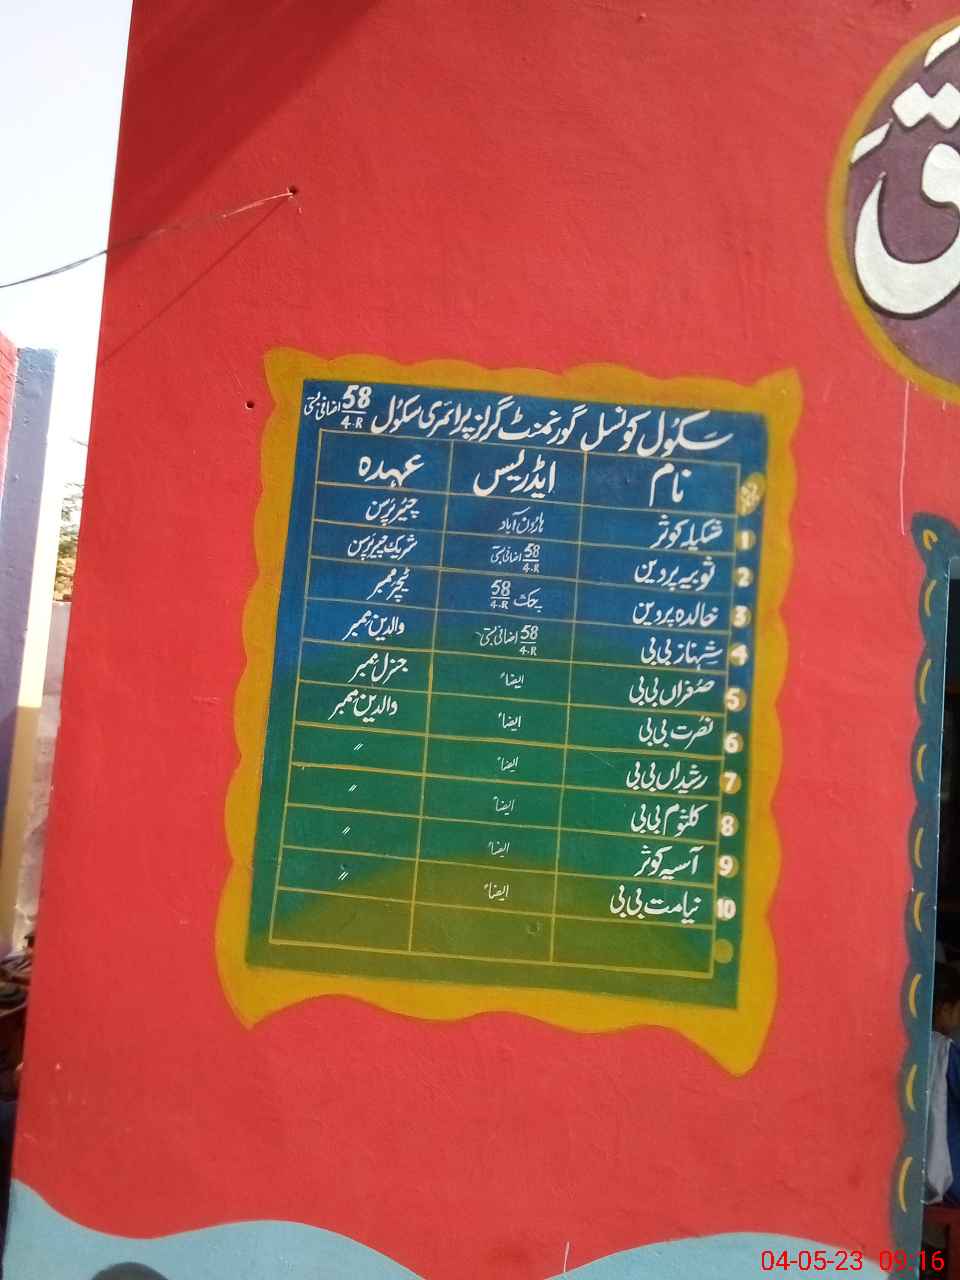 سکول کونسل گورنمنٹ گرلز پرائمری سکول 58/4-R اضافی بستی
نام ایڈریس عہدہ
1 شکیلہ کوثر ہارون آباد چیئرپرسن
2 ثوبیہ پروین 58/4-R اضافی بستی شریک چیئرپرسن
3 خالدہ پروین چک 58/4-R ٹیچر ممبر
4 شہناز بی بی 58/4-R اضافی بستی والدین ممبر
5 صغراں بی بی ایضاً جنرل ممبر
6 نصرت بی بی ایضاً والدین ممبر
7 رشیداں بی بی ایضاً 〃
8 کلثوم بی بی ایضاً 〃
9 آسیہ کوثر ایضاً 〃
10 نیامت بی بی ایضاً 〃
04-05-23 09:16